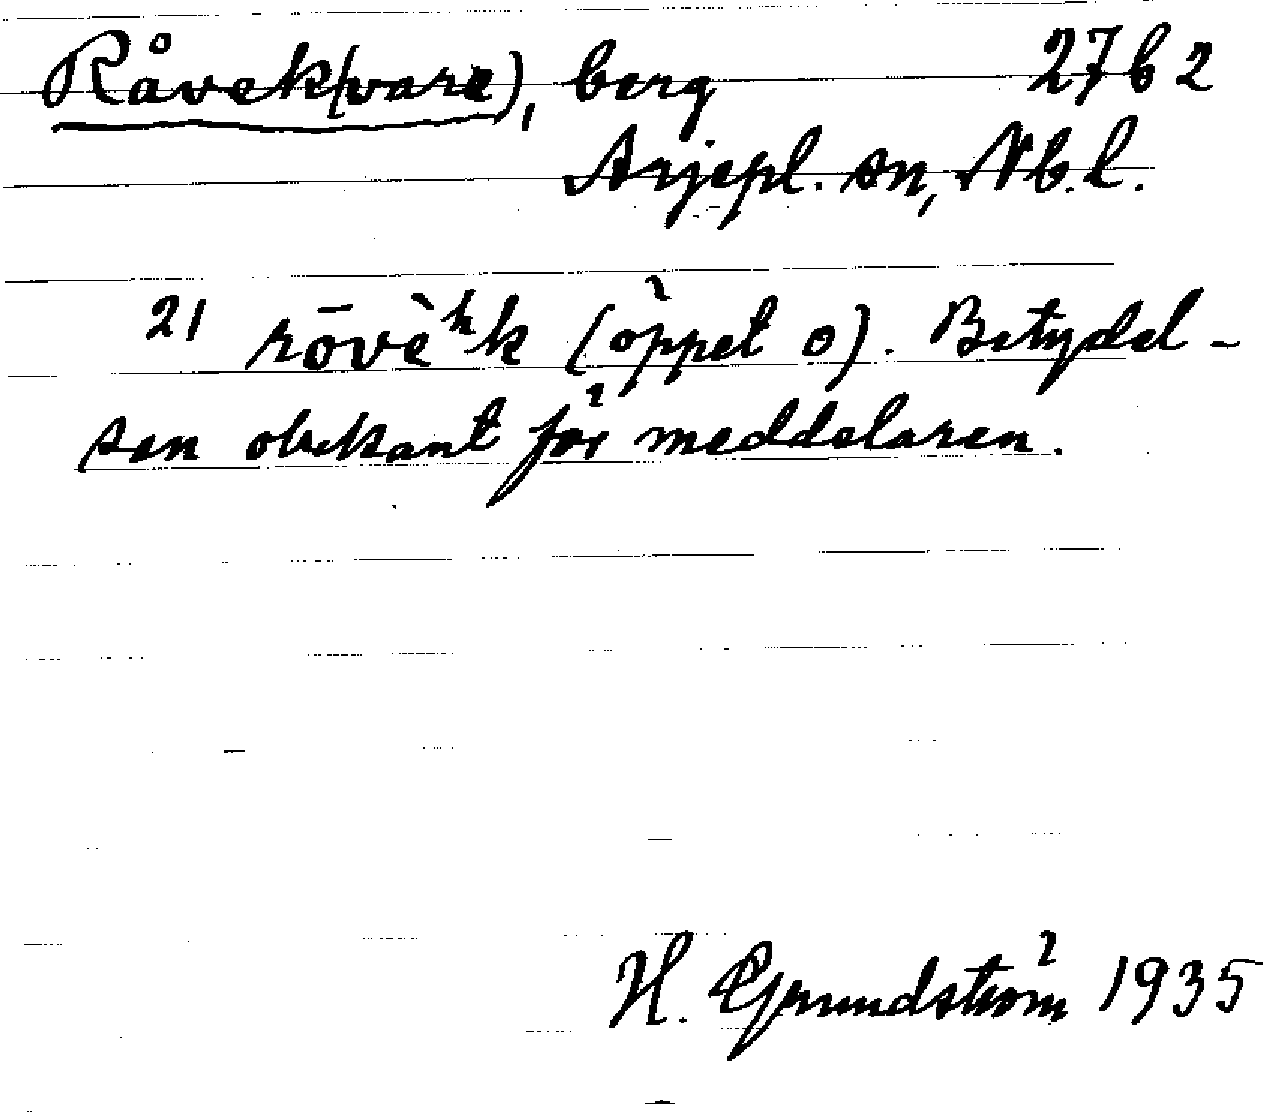 Råvek(vare), berg 27b2
Arjepl. sn, Nb.l.
21 rōvè<sup>k</sup>k (öppet o). Betydel-
sen obekant för meddelaren.
H. Grundström 1935